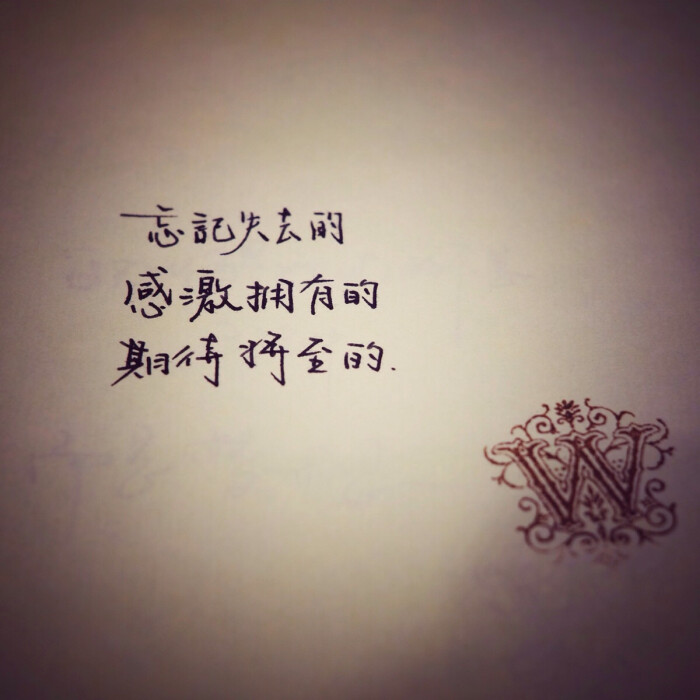 忘記失去的
感激拥有的
期待将至的.
W